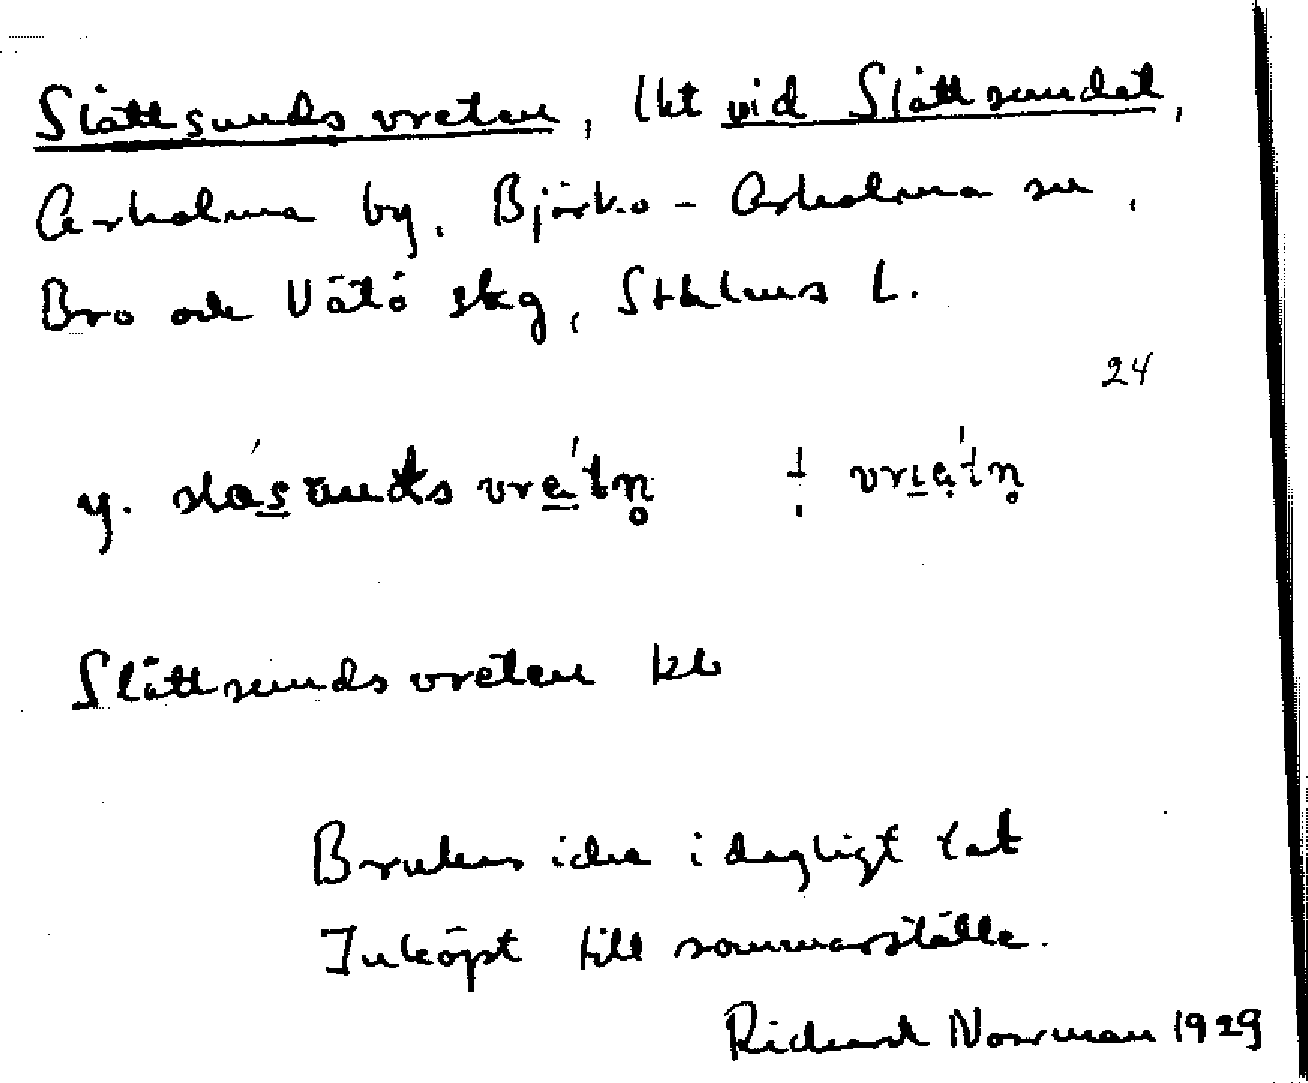 Slättsundsvreten, lht vid Slättsundet,
Arholma by, Björkö-Arholma sn,
Bro och Vätö skg, Sthlms L.
24
y.
Slättsundsvreten kb
Brukas icke i dagligt tal
Inköpt till sommarställe.
Richard Norrman 1929